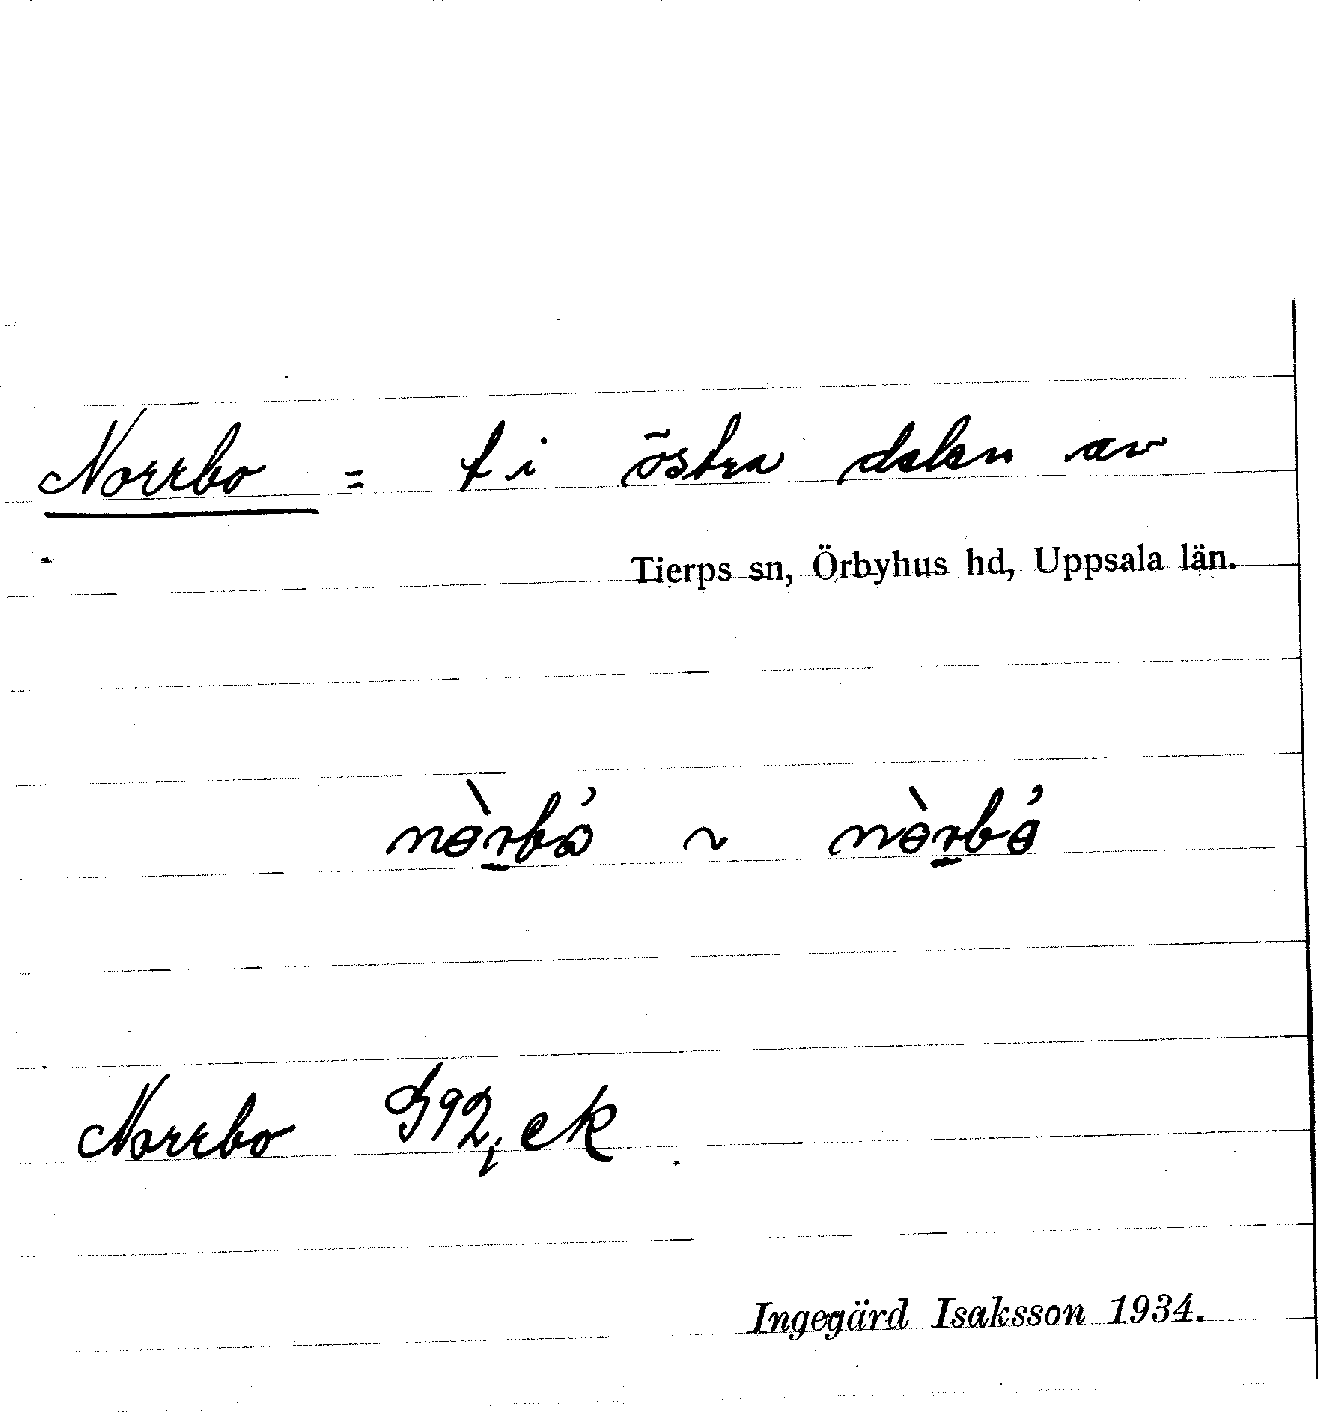 Norrbo = t i östra delen av
Tierps sn, Örbyhus hd, Uppsala län.
nɵ̀rbɷ̀ ~ nɵ̀rbɵ̀
Norrbo G92, ek
Ingegärd Isaksson 1934.